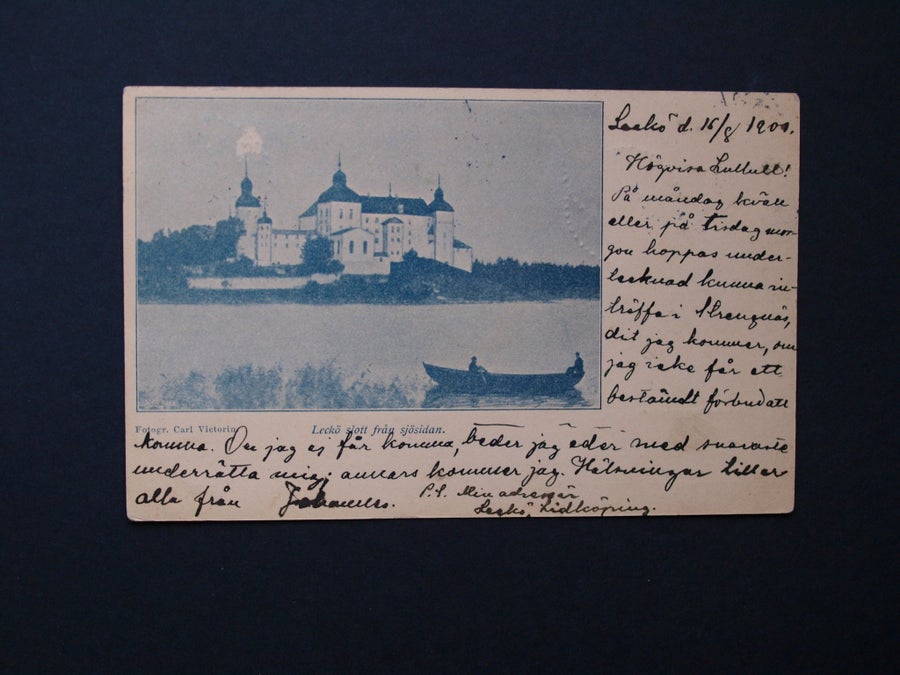 Leckö d. 16/8 1900.
Högvisa Lullull!
På måndag kväll
eller på tisdag mor-
gon hoppas under-
tecknad kunna in-
träffa i Strengnäs,
dit jag kommer, om
jag icke får ett
bestämdt förbud att
Fotogr. Carl Victorin
Leckö slott från sjösidan.
komma. Om jag ej får komma, beder jag eder med snaraste
underrätta mig; annars kommer jag. Hälsningar till er
alla från Johannes.
P.S. Min adress är
Leckö, Lidköping.